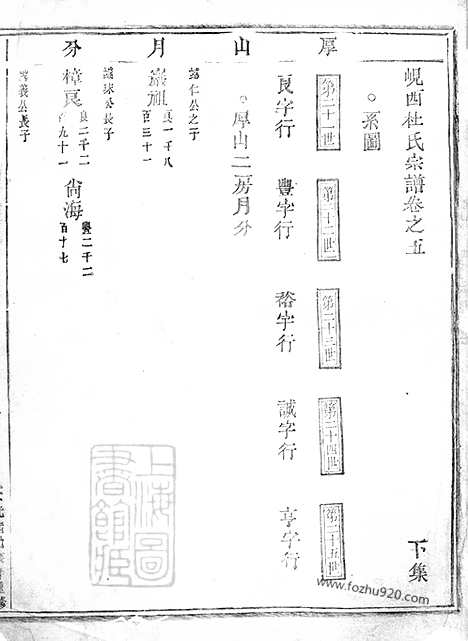 峴西杜氏宗譜卷之五
下集
○系圖
厚
第二十一世
第二十二世
第二十三世
第二十四世
第二十五世
良字行
豐字行
裕字行
誠字行
亨字行
山
○厚山二房月分
諱仁公之子
月
崇祖
良一千八
百三十一
諱球公長子
分
樟良
良二千二
百九十一
尙海
豐二千二
百十七
諱義公長子
上海圖
書館藏
www.fozhu920.com